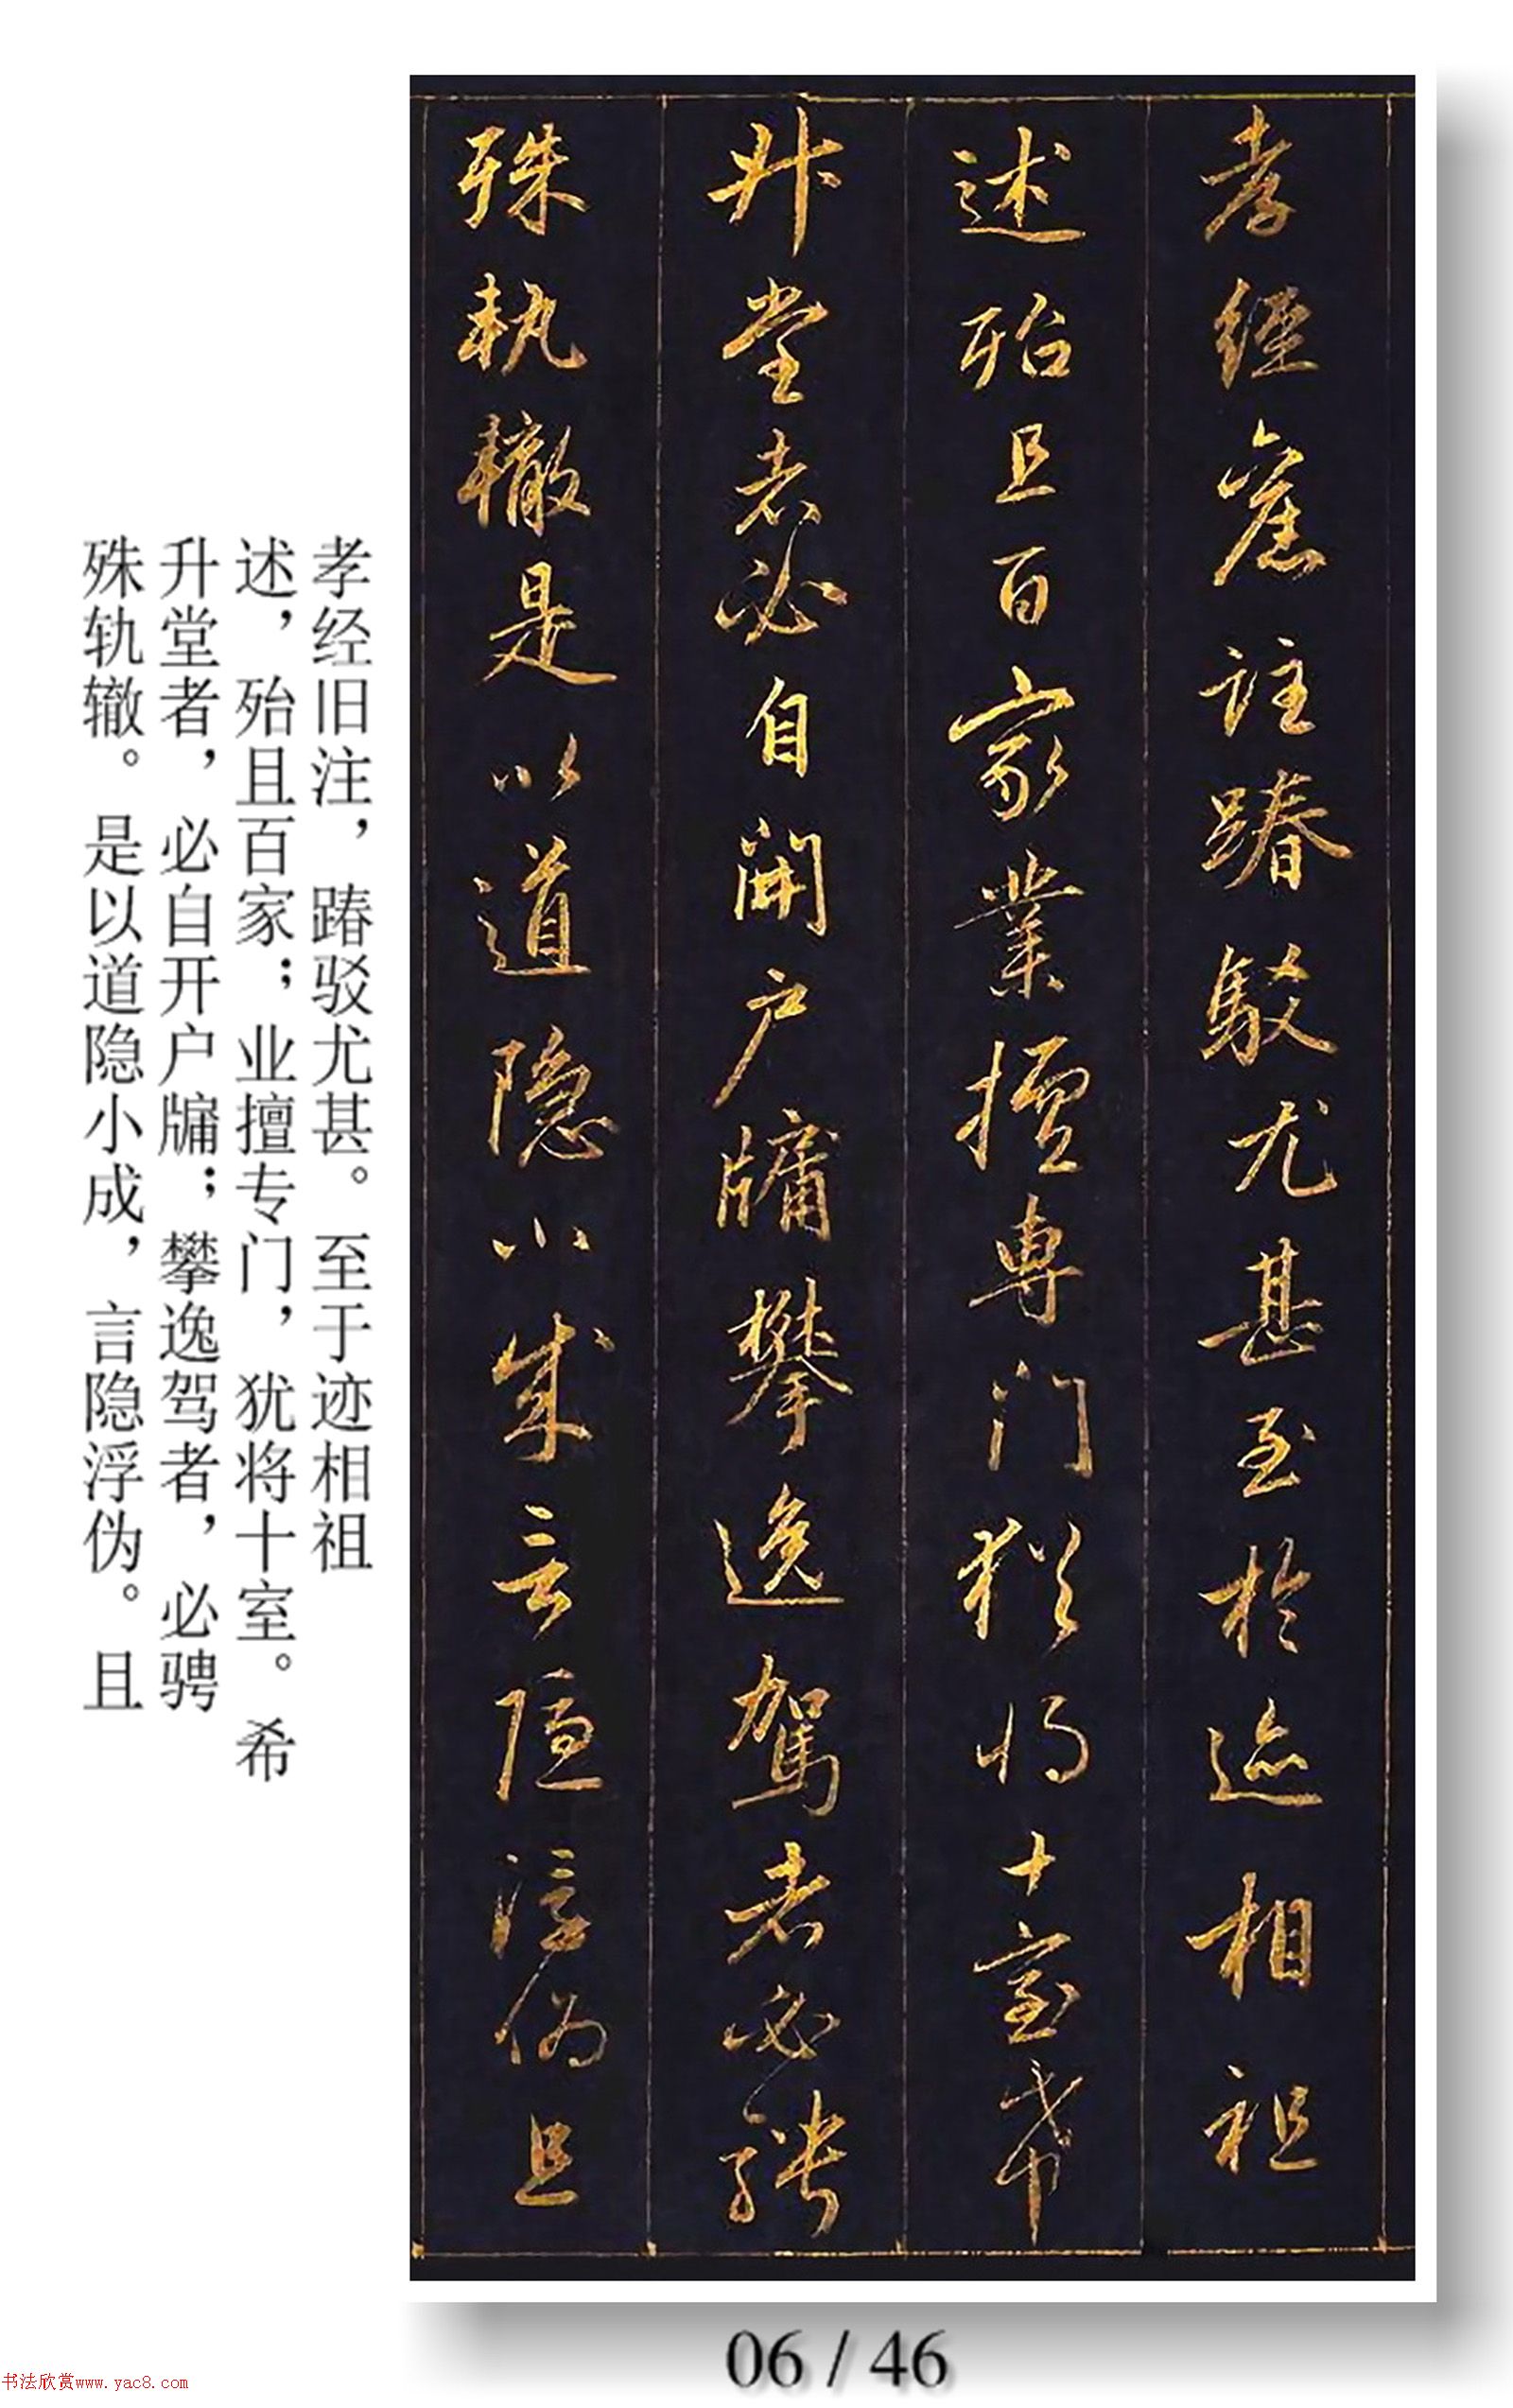 孝經舊註踳駁尤甚至於迹相祖
述殆且百家業擅專門猶將十室希
升堂者必自開户牖攀逸駕者必騁
殊軌轍是以道隱小成言隱浮偽且
孝经旧注，踳驳尤甚。至于迹相祖
述，殆且百家；业擅专门，犹将十室。希
升堂者，必自开户牖；攀逸驾者，必骋
殊轨辙。是以道隐小成，言隐浮伪。且
06 / 46
书法欣赏www.yac8.com